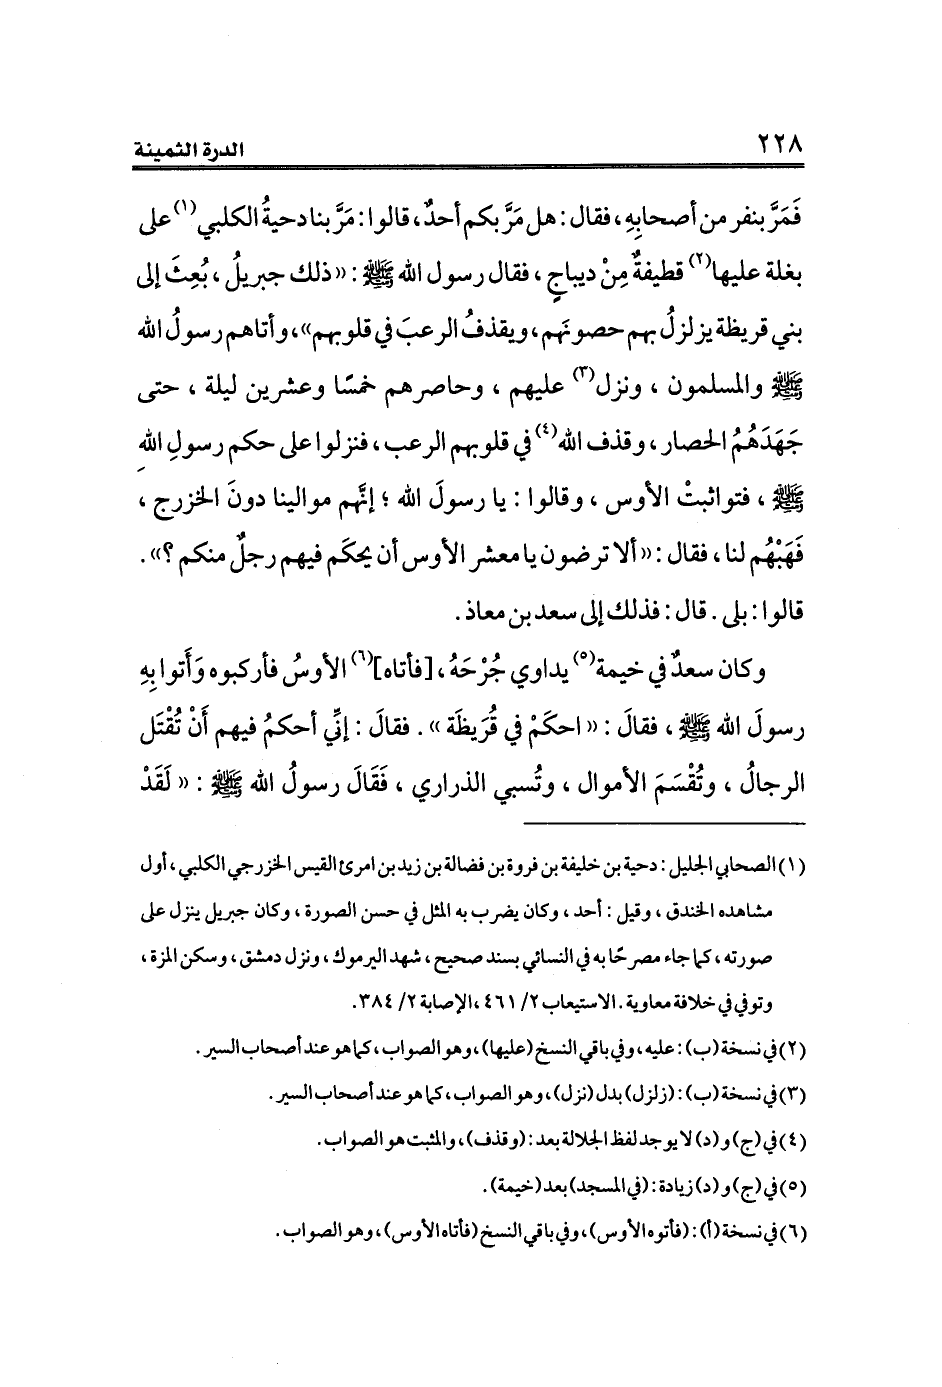 ٢٢٨ الدرة الثمينة
فَمَرَّ بنفر من أصحابِهِ، فقال: هل مَرَّ بكم أحدٌ، قالوا: مَرَّ بنا دحيةُ الكلبي(١) على
بغلة عليها(٢) قطيفةٌ مِنْ ديباجٍ، فقال رسول الله ﷺ: «ذلك جبريلُ، بُعِثَ إلى
بني قريظة يزلزلُ بهم حصونَهم، ويقذفُ الرعبَ في قلوبهم»، وأتاهم رسولُ الله
ﷺ والمسلمون، ونزل(٣) عليهم، وحاصرهم خمسًا وعشرين ليلة، حتى
جَهَدَهُمُ الحصار، وقذف الله(٤) في قلوبهم الرعب، فنزلوا على حكم رسولِ اللهِ
ﷺ، فتواثبتْ الأوس، وقالوا: يا رسولَ الله؛ إنَّهم موالينا دونَ الخزرج،
فَهَبْهُم لنا، فقال: «ألا ترضون يا معشر الأوس أن يحكَم فيهم رجلٌ منكم؟».
قالوا: بلى. قال: فذلك إلى سعد بن معاذ.
وكان سعدٌ في خيمة(٥) يداوي جُرْحَهُ، [فأتاه](٦) الأوسُ فأركبوه وَأَتوا بِهِ
رسولَ الله ﷺ، فقالَ: «احكَمْ في قُرَيظَة». فقالَ: إنِّي أحكمُ فيهم أَنْ تُقْتَل
الرجالُ، وتُقْسَمَ الأموال، وتُسبي الذراري، فَقَالَ رسولُ الله ﷺ: «لَقَدْ
(١) الصحابي الجليل: دحية بن خليفة بن فروة بن فضالة بن زيد بن امرئ القيس الخزرجي الكلبي، أول
مشاهده الخندق، وقيل: أحد، وكان يضرب به المثل في حسن الصورة، وكان جبريل ينزل على
صورته، كما جاء مصرحًا به في النسائي بسند صحيح، شهد اليرموك، ونزل دمشق، وسكن المزة،
وتوفي في خلافة معاوية. الاستيعاب ٢/ ٤٦١، الإصابة ٢/ ٣٨٤.
(٢) في نسخة (ب): عليه، وفي باقي النسخ (عليها)، وهو الصواب، كما هو عند أصحاب السير.
(٣) في نسخة (ب): (زلزل) بدل (نزل)، وهو الصواب، كما هو عند أصحاب السير.
(٤) في (ج) و (د) لا يوجد لفظ الجلالة بعد: (وقذف)، والمثبت هو الصواب.
(٥) في (ج) و (د) زيادة: (في المسجد) بعد (خيمة).
(٦) في نسخة (أ): (فأتوه الأوس)، وفي باقي النسخ (فأتاه الأوس)، وهو الصواب.